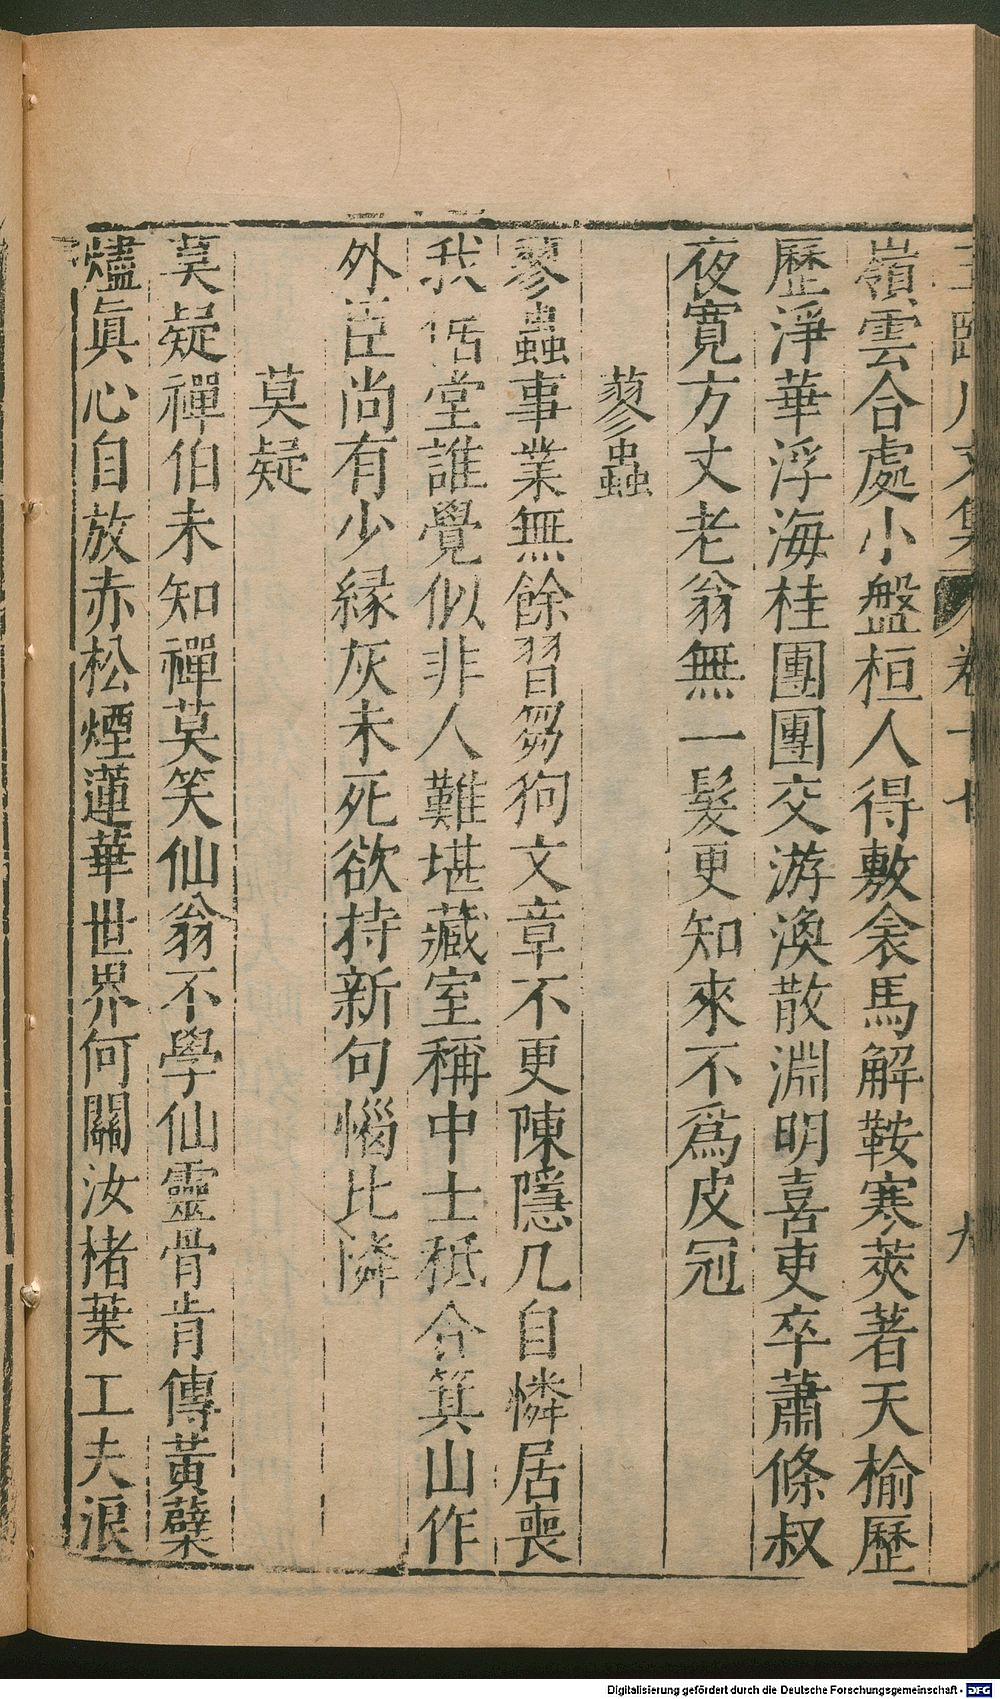 王臨川文集 卷十七 九
嶺雲合處小盤桓人得敷衾馬解鞍寒莢著天榆歷
歷淨華浮海桂團團交游渙散淵明喜吏卒蕭條叔
夜寬方丈老翁無一髮更知來不爲皮冠
蓼蟲
蓼蟲事業無餘習芻狗文章不更陳隱几自憐居喪
我倨堂誰覺似非人難堪藏室稱中士秖合箕山作
外臣尚有少緣灰未死欲持新句惱比憐
莫疑
莫疑禪伯未知禪莫笑仙翁不學仙靈骨肯傳黃蘗
燼眞心自放赤松煙蓮華世界何關汝楮葉工夫浪
Digitalisierung gefördert durch die Deutsche Forschungsgemeinschaft - DFG